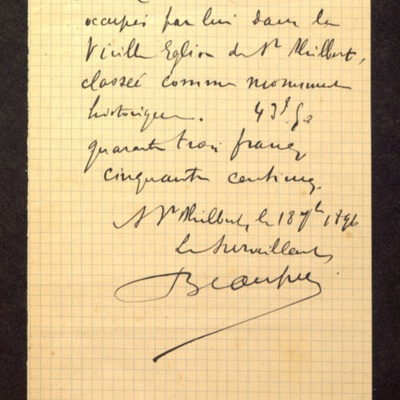 occupés par lui dans la
Vieille Eglise de St Philbert,
classée comme monument
historique. 43f.50
quarante trois francs
cinquante centimes.
A St Philbert, le 18 1896
Le Surveillant,